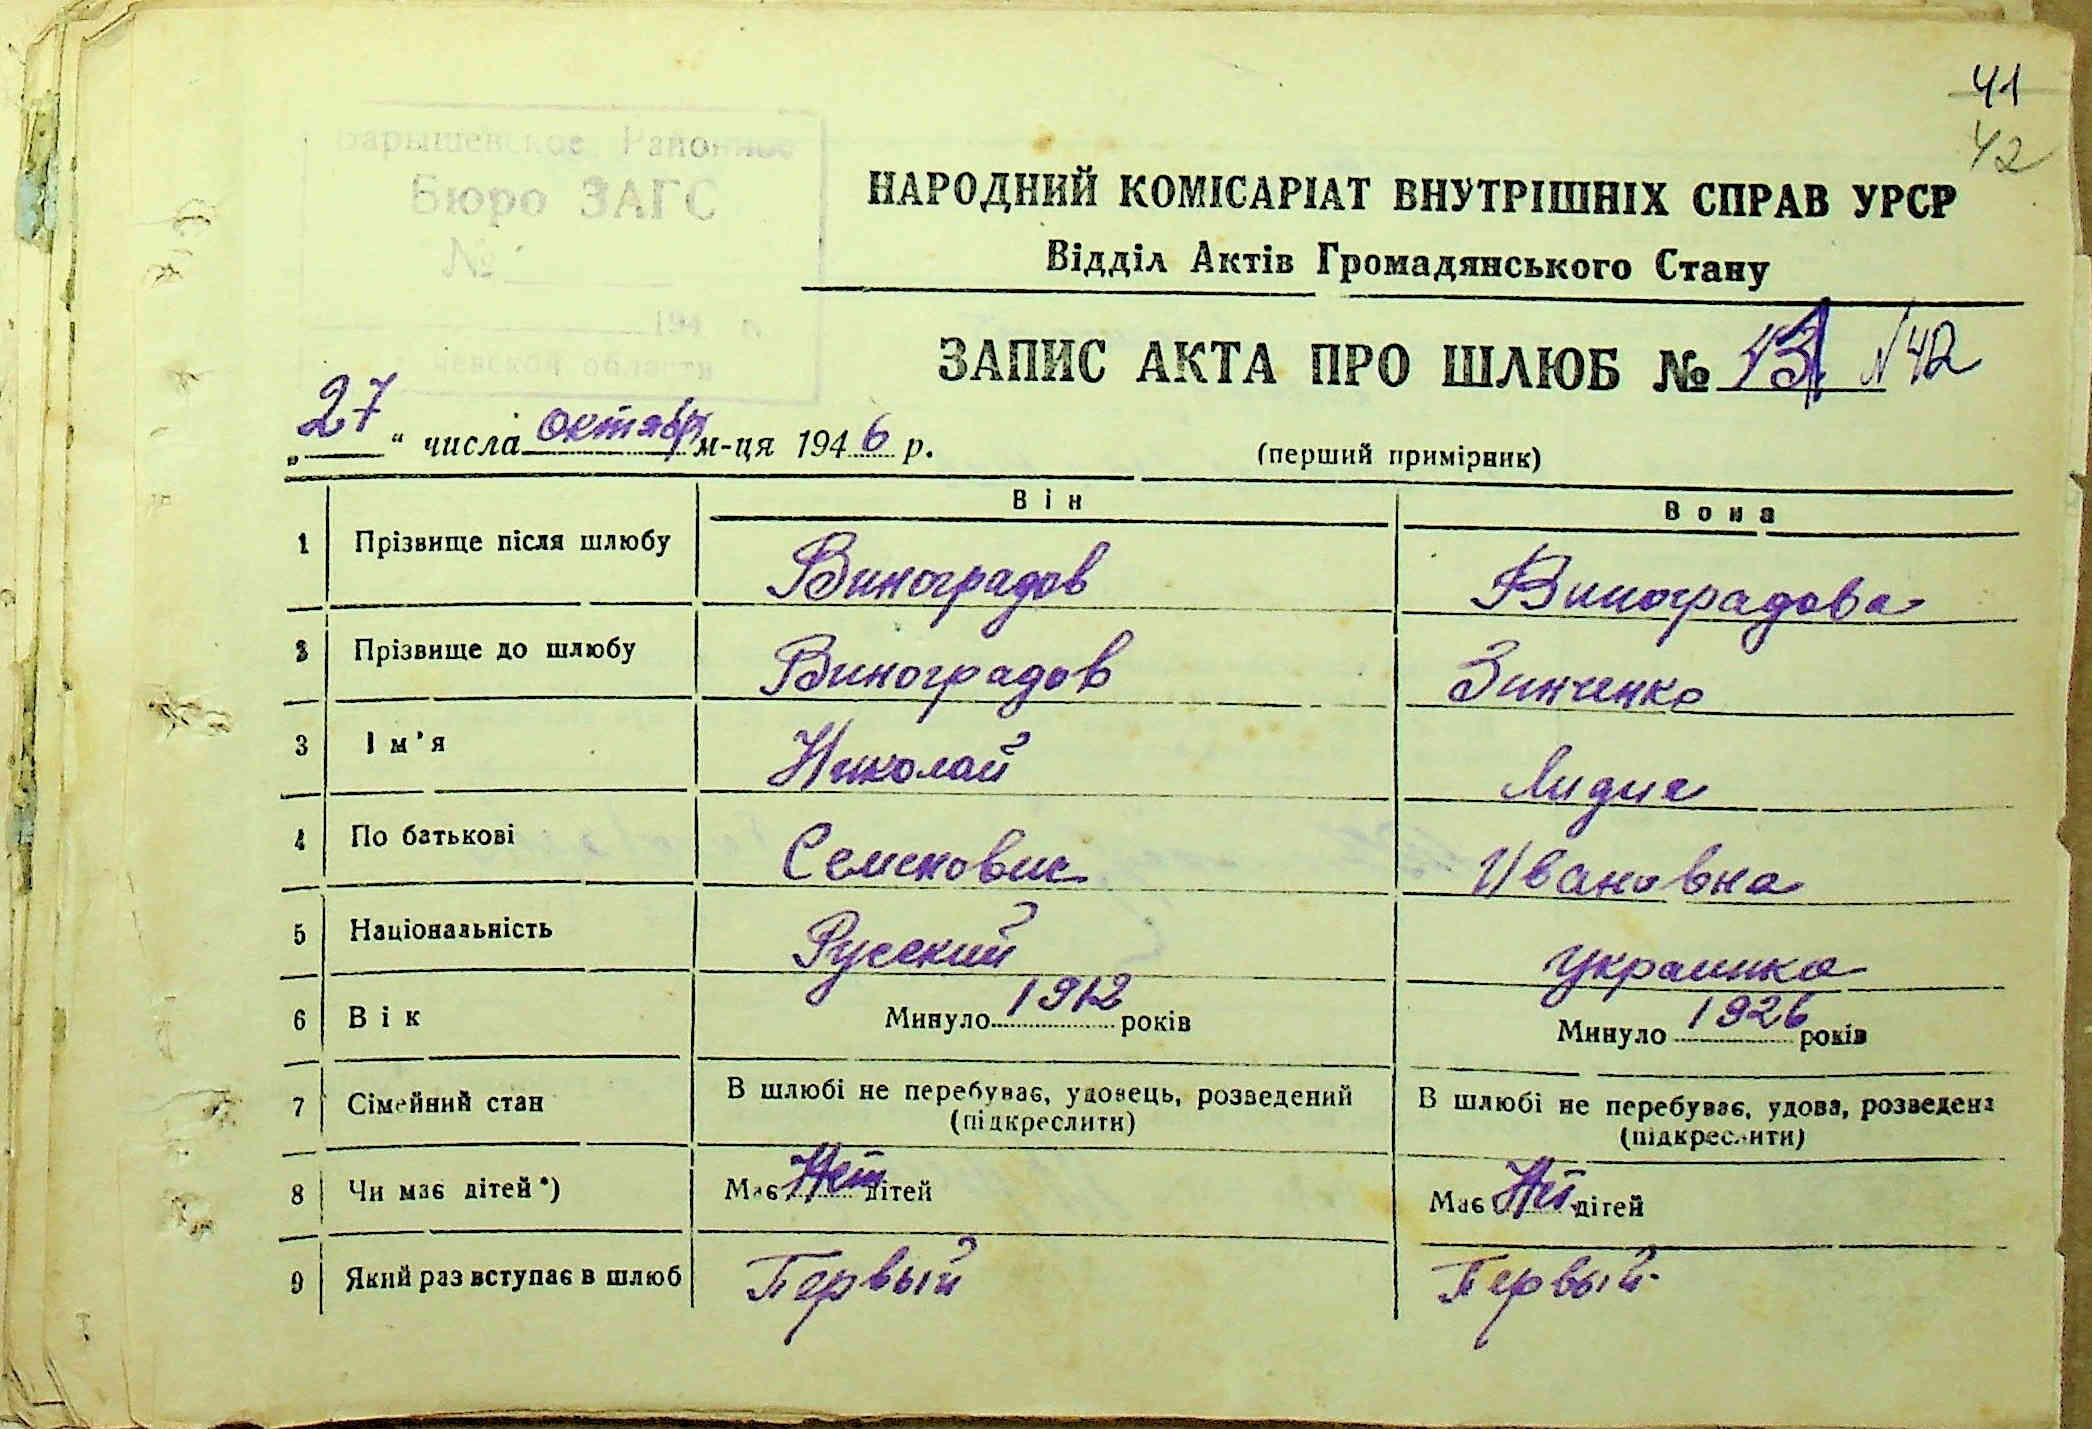 41
42
Барышевское Районное
Бюро ЗАГС
№
194 г.
области
НАРОДНИЙ КОМІСАРІАТ ВНУТРІШНІХ СПРАВ УРСР
Відділ Актів Громадянського Стану
ЗАПИС АКТА ПРО ШЛЮБ № N42
„27“ числа октября м-ця 1946 р.
(перший примірник)
Він Вона
1 Прізвище після шлюбу Виноградов Виноградова
2 Прізвище до шлюбу Виноградов Зинченко
3 Ім'я Николай Лидия
4 По батькові Семенович Ивановна
5 Національність Русский Украинка
6 Вік Минуло 1912 років Минуло 1926 років
7 Сімейний стан В шлюбі не перебуває, удовець, розведений В шлюбі не перебуває, удова, розведена
(підкреслити) (підкреслити)
8 Чи має дітей*) Має Нет дітей Має Нет дітей
9 Який раз вступає в шлюб Первый Первый